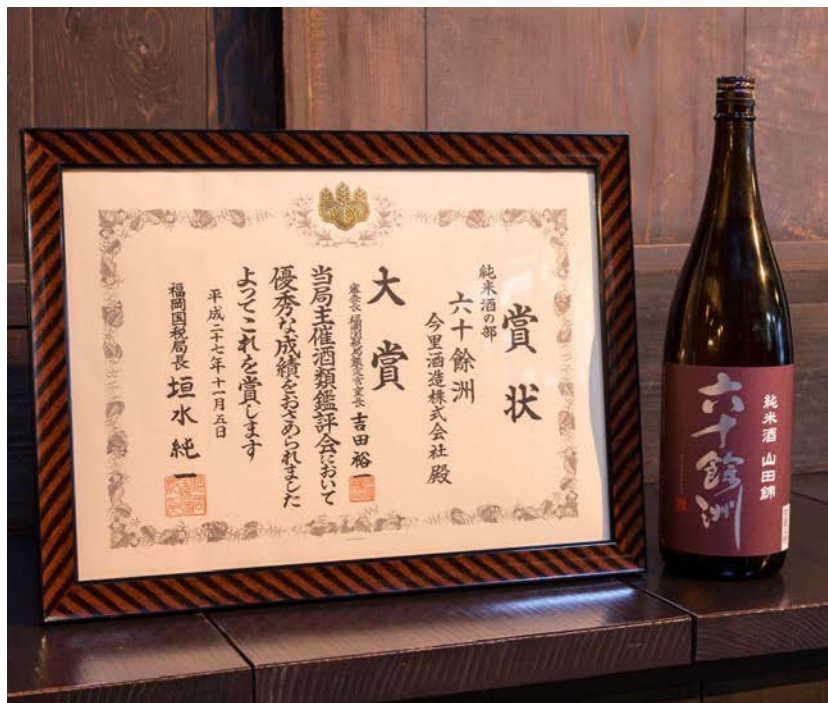 賞状
純米酒の部
六十餘洲
今里酒造株式会社殿
大賞
審査長 福岡国税局鑑定官室長 吉田裕一
当局主催酒類鑑評会において
優秀な成績をおさめられました
よってこれを賞します
平成二十七年十一月五日
福岡国税局長 垣水純一
純米酒 山田錦
六十餘洲